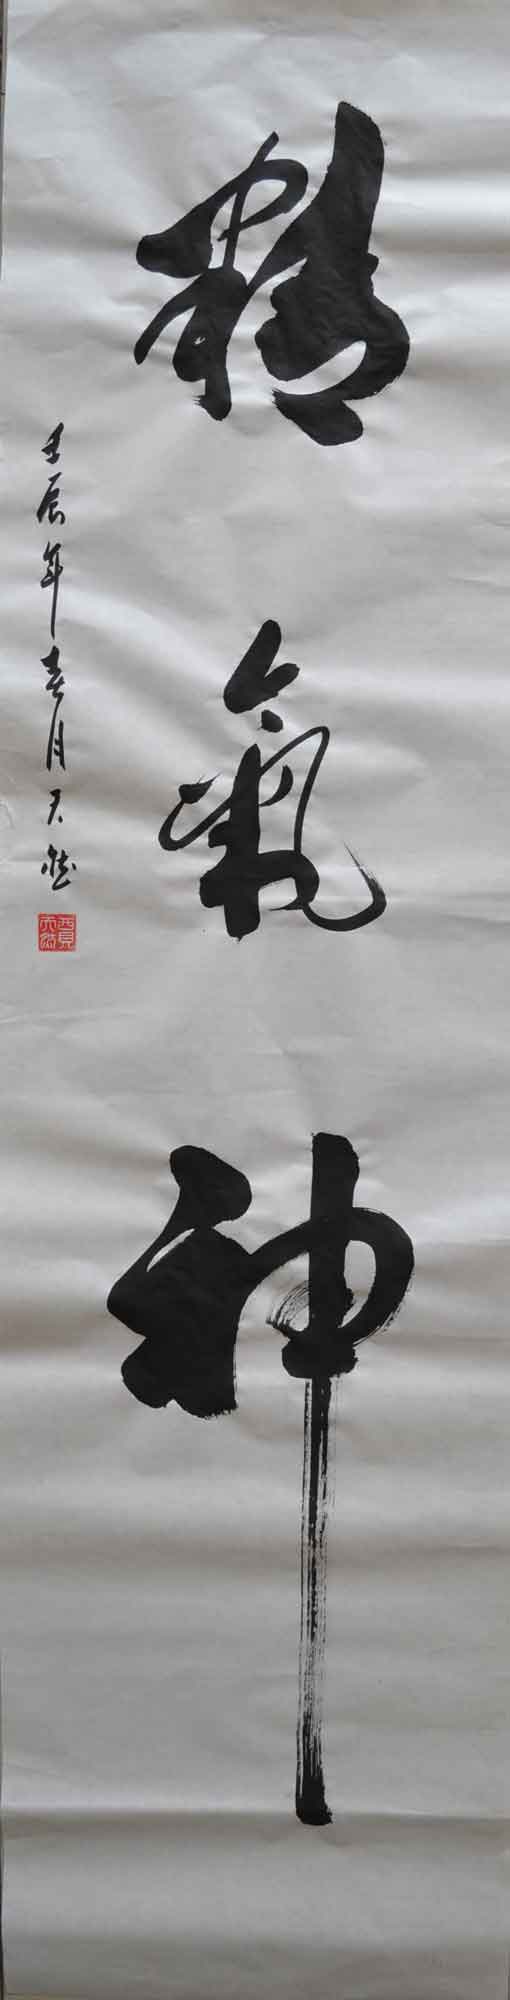 精氣神
壬辰年春月天浩